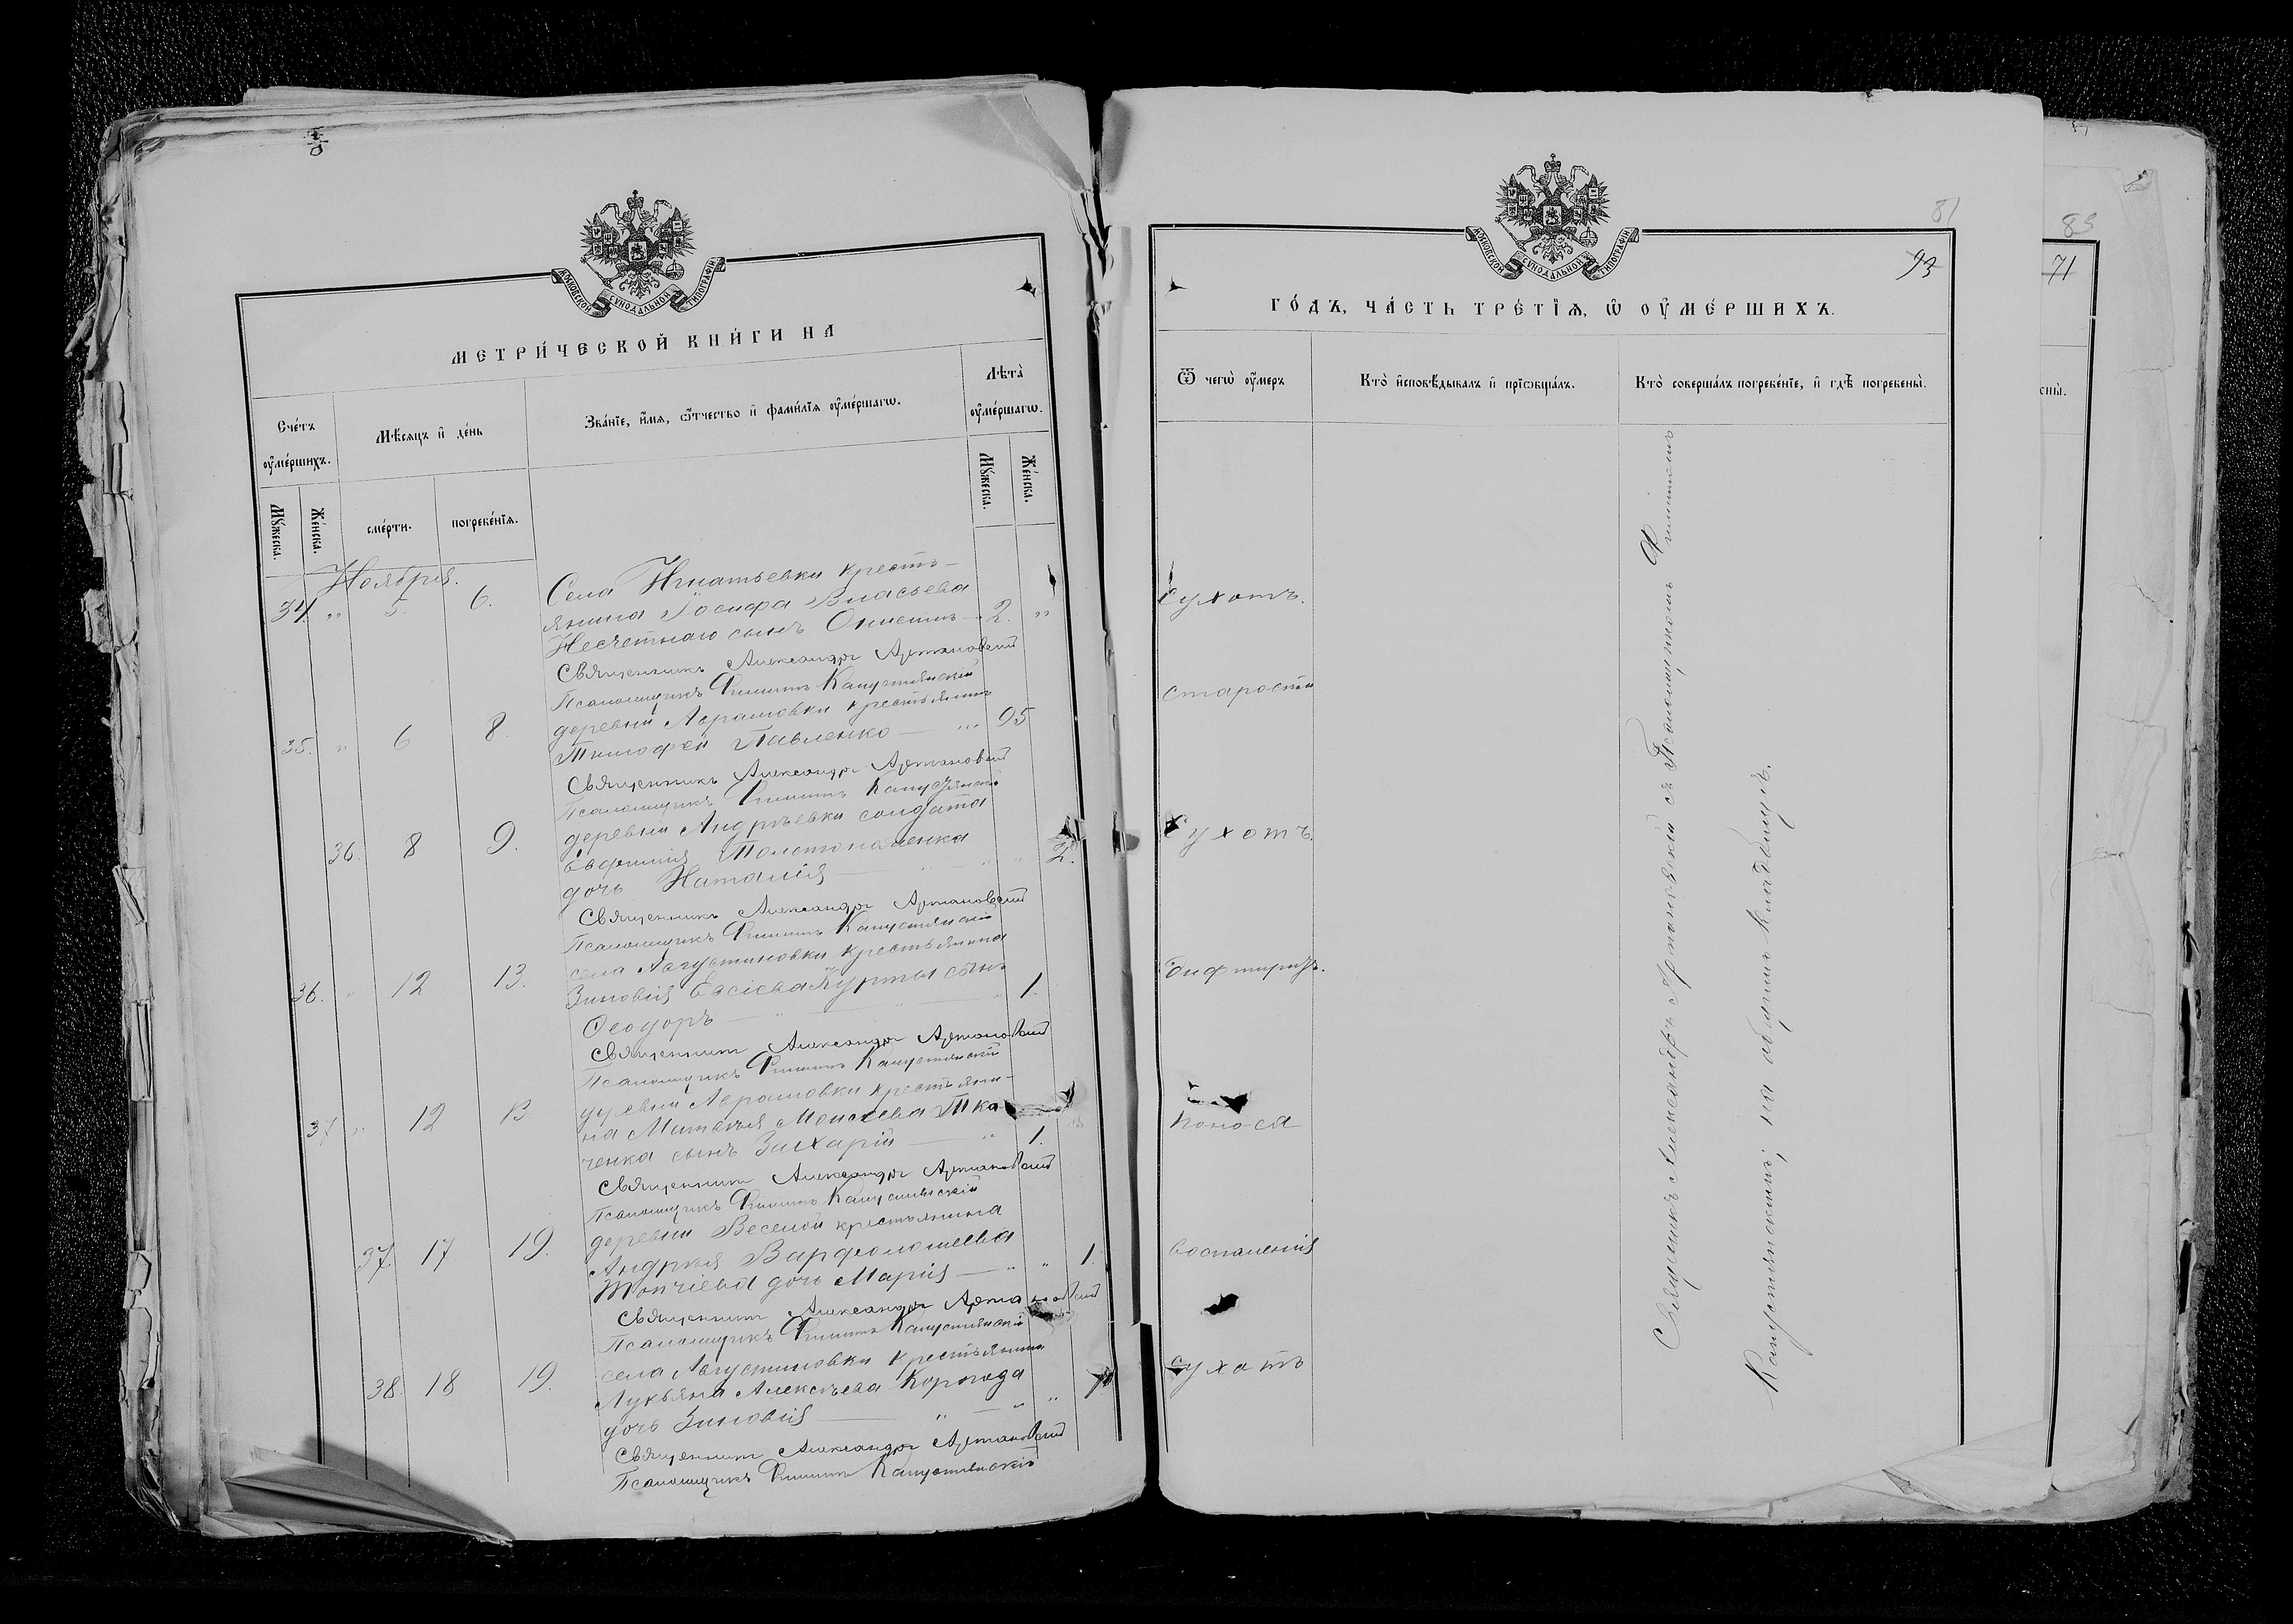 МОСКОВСКОЙ СѴНОДАЛЬНОЙ ТИПОГРАФІИ
МЕТРИ́ЧЕСКОЙ КНИ́ГИ НА
Сче́тъ ᲂу҆ме́ршихъ.
Мѣ́сяцъ и҆ де́нь
Зва́нїе, и҆́мя, ѻ҆́тчество и҆ фами́лїя ᲂу҆ме́ршагѡ.
Лѣ́та ᲂу҆ме́ршагѡ.
Мꙋ́жеска.
Же́нска.
сме́рти.
погребе́нїя.
Мꙋ́жеска.
Же́нска.
Ноября.
34. „ 5. 6. Села Игнатьевки кресть-
янина Іосифа Власьева
Несчетнаго сынъ 2. „
Священникъ Александръ Артановскій
Псаломщикъ Филиппъ Капустянскій
35. „ 6 8. деревни Аврамовки крестьянинъ
Тимофей Павленко — „ 95
Священникъ Александръ Артановскій
Псаломщикъ Филиппъ Капустянскій
36. 8 9. деревни Андрѣевки солдата
Евфимія
дочь Наталія — „ „ 2.
Священникъ Александръ Артановскій
Псаломщикъ Филиппъ Капустянскій
36. „ 12 13. села Августиновки крестьянина
Зиновія Евсіева Курты сынъ
Ѳеодоръ — „ — „ 1.
Священникъ Александръ Артановскій
Псаломщикъ Филиппъ Капустянскій
37 „ 12 13. деревни Аврамовки крестьяни-
на Матвѣя Моисеева Тка-
ченка сынъ Захарій — „ 1.
Священникъ Александръ Артановскій
Псаломщикъ Филиппъ Капустянскій
37. 17 19. деревни Веселой крестьянина
Андрея Варфоломеева
Топчіева дочь Марія — „ „ 1
Священникъ Александръ Артановскій
Псаломщикъ Филиппъ Капустянскій
38. 18 19. села Августиновки крестьянина
Лукьяна Алексѣева
дочь Зиновія — „ — „ „ 1
Священникъ Александръ Артановскій
Псаломщикъ Филиппъ Капустянскій
81
93
МОСКОВСКОЙ СѴНОДАЛЬНОЙ ТИПОГРАФІИ
ГО́ДЪ, ЧА́СТЬ ТРЕ́ТЇѦ, Ѡ҆ ОУ҆МЕ́РШИХЪ.
Ѿ чегѡ̀ ᲂу҆́меръ
Кто̀ и҆сповѣ́дывалъ и҆ прїѡбща́лъ.
Кто̀ соверша́лъ погребе́нїе, и҆ гдѣ̀ погребены̀.
Сухотъ.
старости
Сухотъ.
дифтиритъ.
поноса
воспаленія
Сухотъ
Священникъ Александръ Артановскій съ Псаломщикомъ Филиппомъ
Капустянскимъ, на общемъ кладбищѣ.
83
71
ены̀.